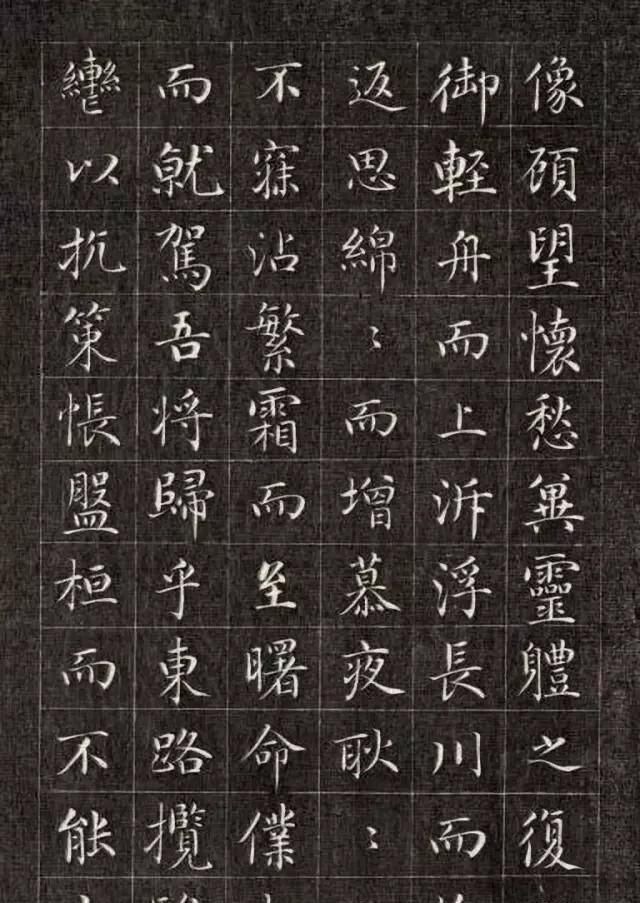 像頋望懷愁兾靈體之復
御輕舟而上泝浮長川而
返思綿〻而增慕夜耿〻
不寐沾繁霜而至曙命僕
而就駕吾将歸乎東路攬
轡以抗策悵盤桓而不能